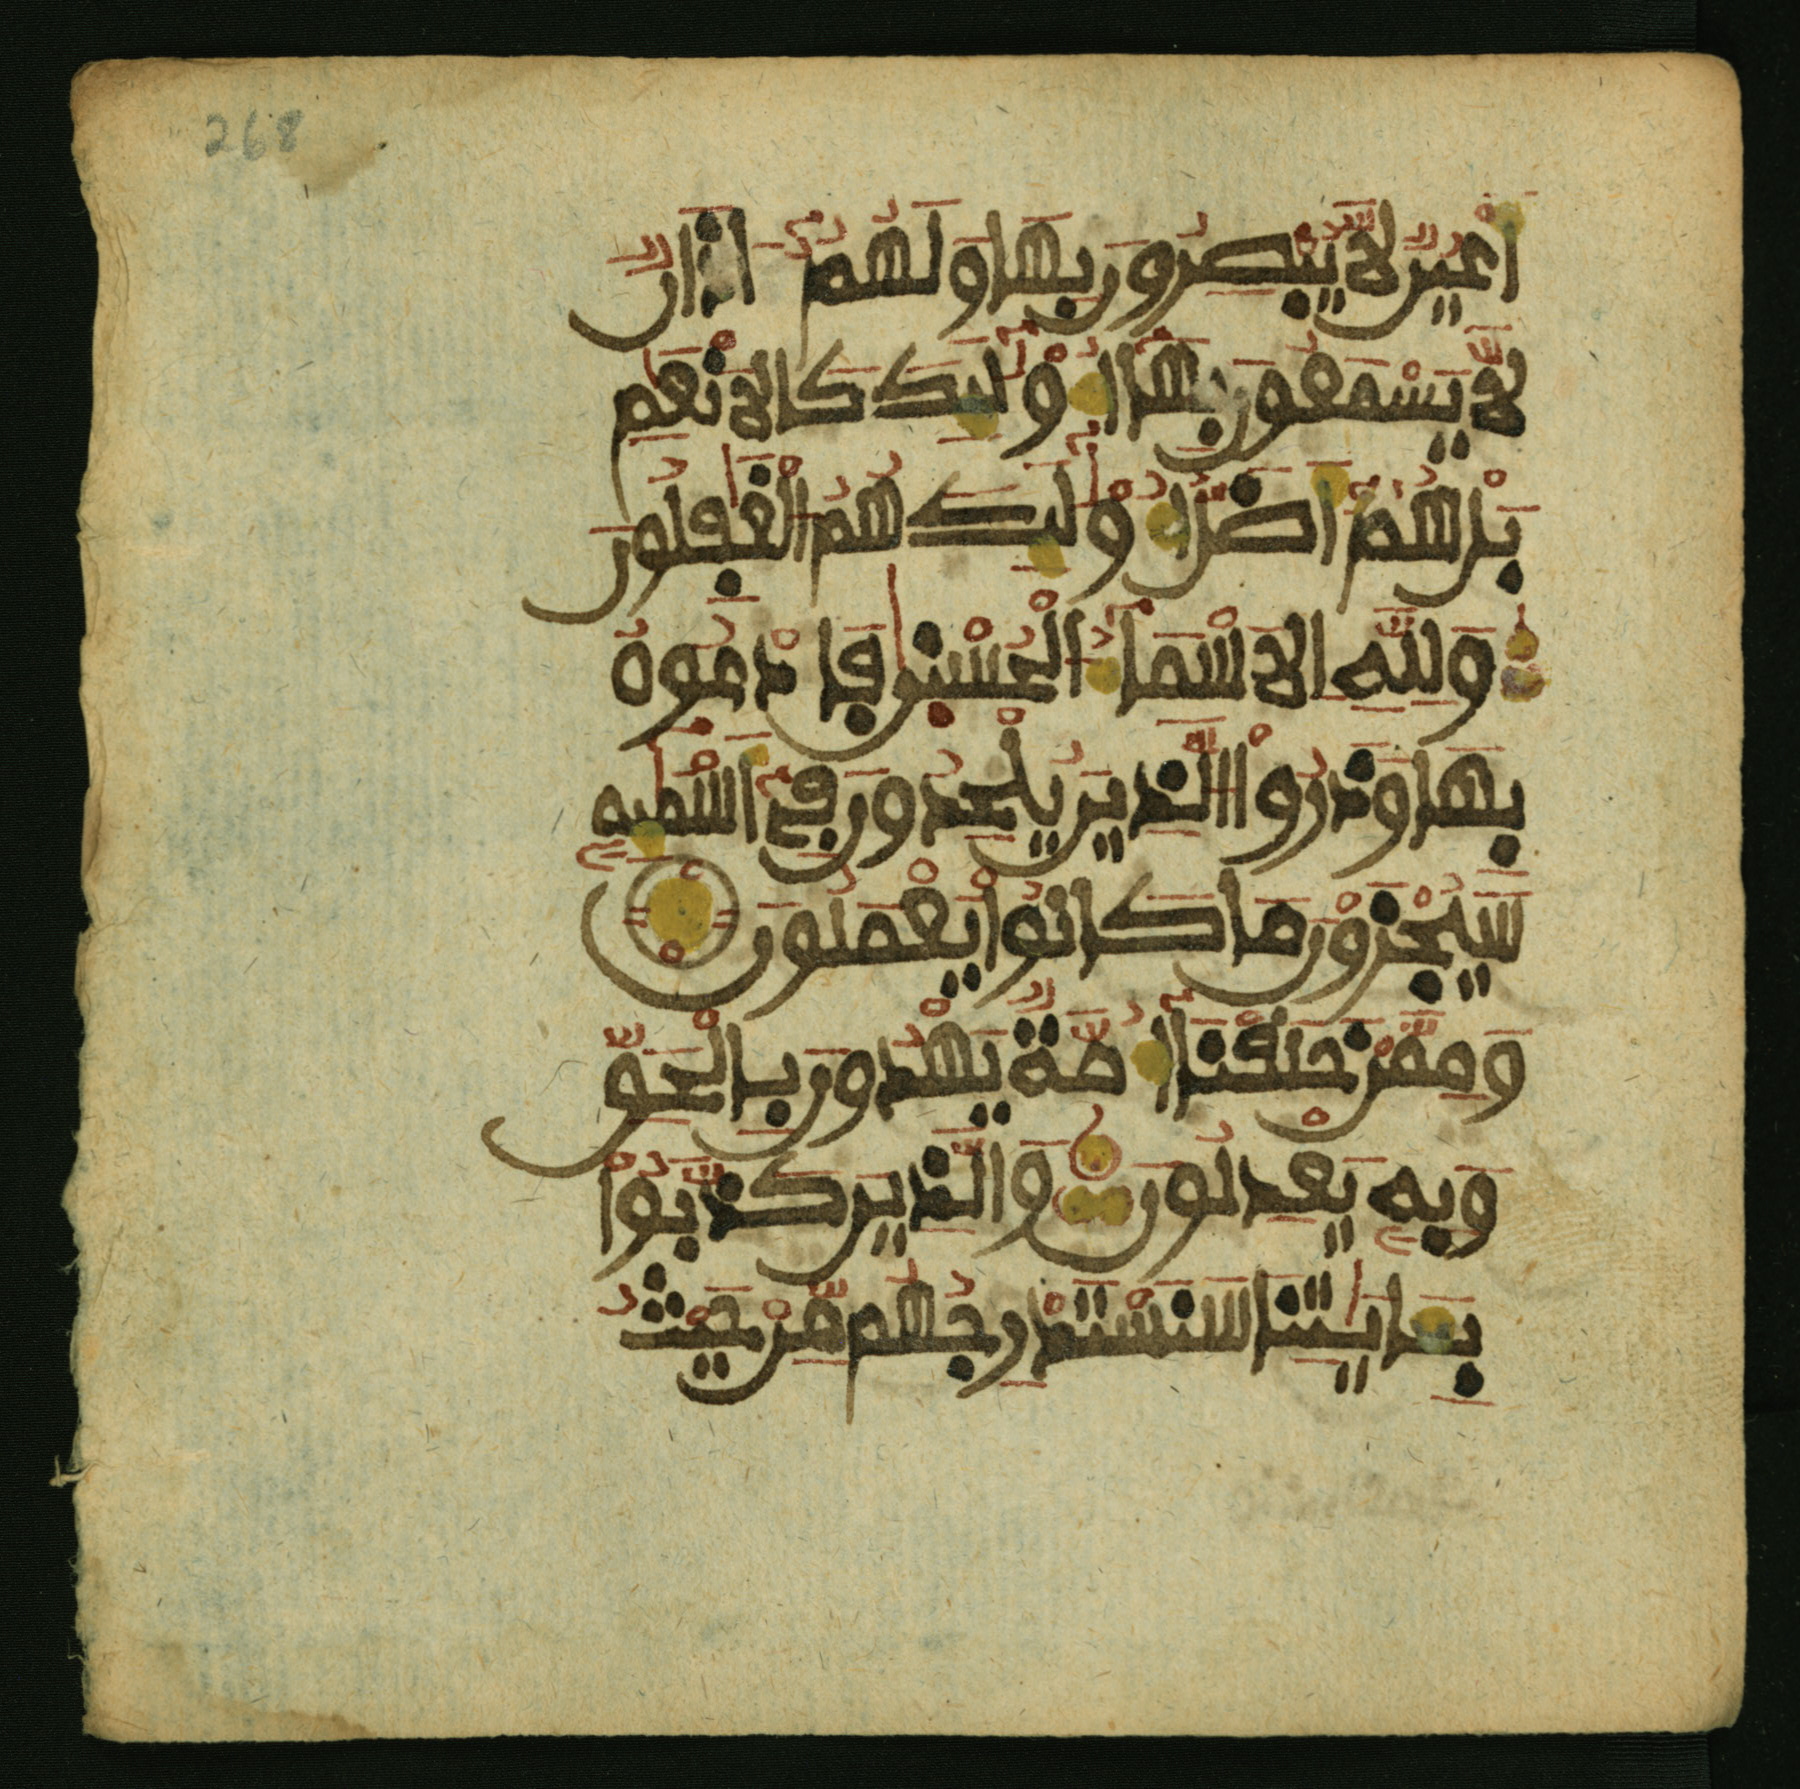 268
أَعْيُنٌ لَّا يُبْصِرُونَ بِهَا وَلَهُمُ ءَاذَانٌ
لَّا يَسْمَعُونَ بِهَا أُوْلَٰٓئِكَ كَالَانْعَٰمِ
بَلْ هُمُ أَضَلُّ أُوْلَٰٓئِكَ هُمُ الْغَٰفِلُونَ
وَلِلَّهِ الَاسْمَآءُ الْحُسْنَىٰ فَادْعُوهُ
بِهَا وَذَرُواْ الَّذِينَ يُلْحِدُونَ فِىٓ أَسْمَٰٓئِهِ
سَيُجْزَوْنَ مَا كَانُواْ يَعْمَلُونَ
وَمِمَّنْ خَلَقْنَآ أُمَّةٌ يَهْدُونَ بِالْحَقِّ
وَبِهِ يَعْدِلُونَ وَالَّذِينَ كَذَّبُواْ
بِـَٔايَٰتِنَا سَنَسْتَدْرِجُهُم مِّنْ حَيْثُ